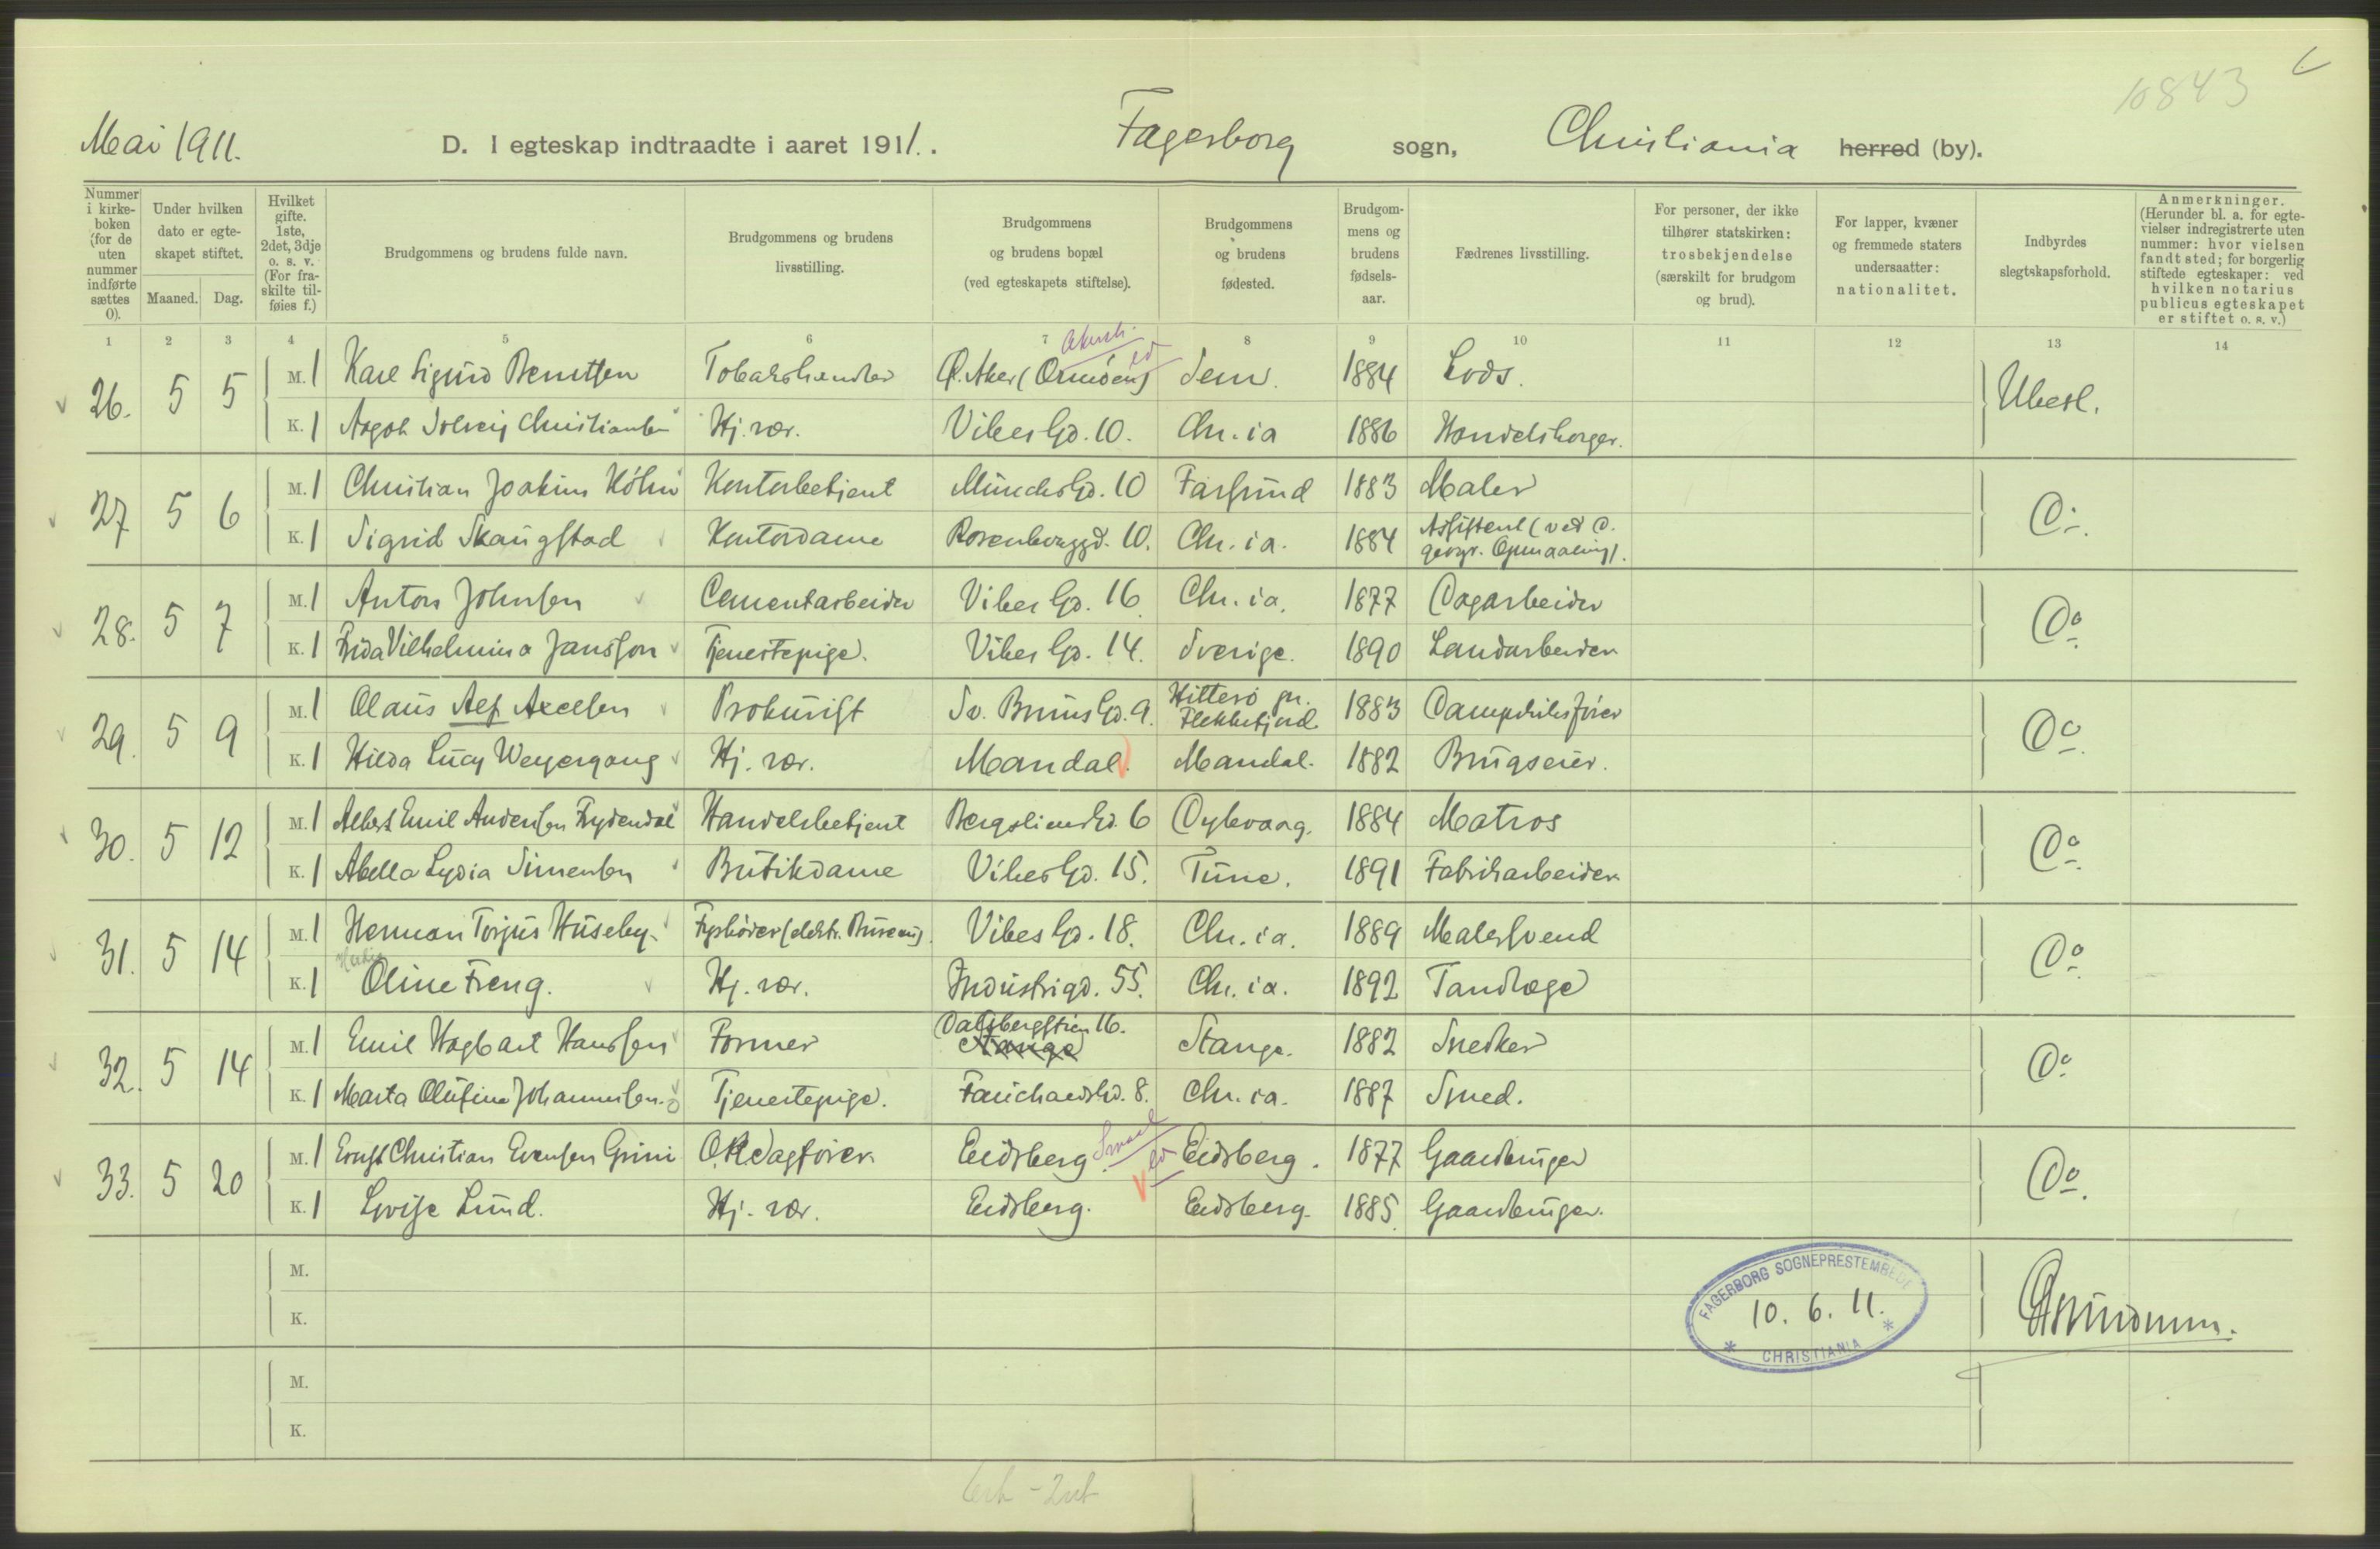 10843
Mai 1911. D. I egteskap indtraadte i aaret 1911. . Fagerborg sogn, Christiania herred (by).
Nummer i kirke-boken (for de uten nummer indførte sættes 0).
Under hvilken dato er egte-skapet stiftet.
Maaned. Dag.
Hvilket gifte. 1ste, 2det, 3dje o. s. v. (For fra-skilte til-føies f.)
Brudgommens og brudens fulde navn.
Brudgommens og brudens livsstilling.
Brudgommens og brudens bopæl (ved egteskapets stiftelse).
Brudgommens og brudens fødested.
Brudgom-mens og brudens fødsels-aar.
Fædrenes livsstilling.
For personer, der ikke tilhører statskirken: trosbekjendelse (særskilt for brudgom og brud).
For lapper, kvæner og fremmede staters undersaatter: nationalitet.
Indbyrdes slegtskapsforhold.
Anmerkninger. (Herunder bl. a. for egte-vielser indregistrerte uten nummer: hvor vielsen fandt sted; for borgerlig stiftede egteskaper: ved hvilken notarius publicus egteskapet er stiftet o. s. v.)
1 2 3 4 5 6 7 8 9 10 11 12 13 14
26. 5 5 M. 1 Karl Sigurd Berntsen Tobakshandler Ø. Aker (Ormøen) Sem. 1884 Lods. Ubesl.
K. 1 Aagot Solveig Christiansen Hj. vær. Vibes Gd. 10. Chr.ia 1886 Handelsborger.
27 5 6 M. 1 Christian Joakim Höhn Kontorbetjent Munchs Gd. 10 Farsund 1883 Maler Do.
K. 1 Sigrid Skaugstad Kontordame Rosenborggd. 10. Chr.ia. 1884 Assistent (ved d. geogr. Opmaaling).
28. 5 7 M. 1 Anton Johnsen Cementarbeider Vibes Gd. 16 Chr.ia. 1877 Dagarbeider Do
K. 1 Frida Vilhelmina Jansson Tjenestepige. Vibes Gd. 14. Sverige. 1890 Landarbeider
29. 5 9 M. 1 Olaus Alf Axelsen Prokurist Sv. Bruns Gd. 9. Hitterö pr. Flekkefjord 1883 Dampskibsfører Do.
K. 1 Hilda Lucy Weyergang Hj. vær. Mandal. Mandal. 1882 Brugseier.
30. 5 12 M. 1 Albert Emil Andersen Frydendal Handelsbetjent Bergsliens Gd. 6 Dybvaag. 1884 Matros Do
K. 1 Abella Lydia Simensen Butikdame Vibes Gd. 15. Tune. 1891 Fabrikarbeider
31. 5 14 M. 1 Herman Torjus Huseby. Fyrbøder (elektr. Bureau). Vibes Gd. 18. Chr.ia. 1889 Malersvend Do
K. 1 Oline Freng. Hj. vær. Industrigd. 55. Chr.ia. 1892 Tandlæge
32. 5 14 M. 1 Emil Hagbart Hanssen Former Dalsbergstien 16. Stange Stange. 1882 Snedker Do
K. 1 Marta Olufine Johannesen. Tjenestepige. Fauchalds Gd. 8. Chr.ia. 1887 Smed.
33. 5 20 M. 1 Ernst Christian Evensen Grini O.R.Sagfører Eidsberg Eidsberg. 1877 Gaardbruger Do.
K. 1 Lovise Lund. Hj. vær. Eidsberg. Eidsberg. 1885. Gaardbruger.
M.
K.
FAGERBORG SOGNEPRESTEMBEDE
10. 6. 11.
* CHRISTIANIA *
M.
K.